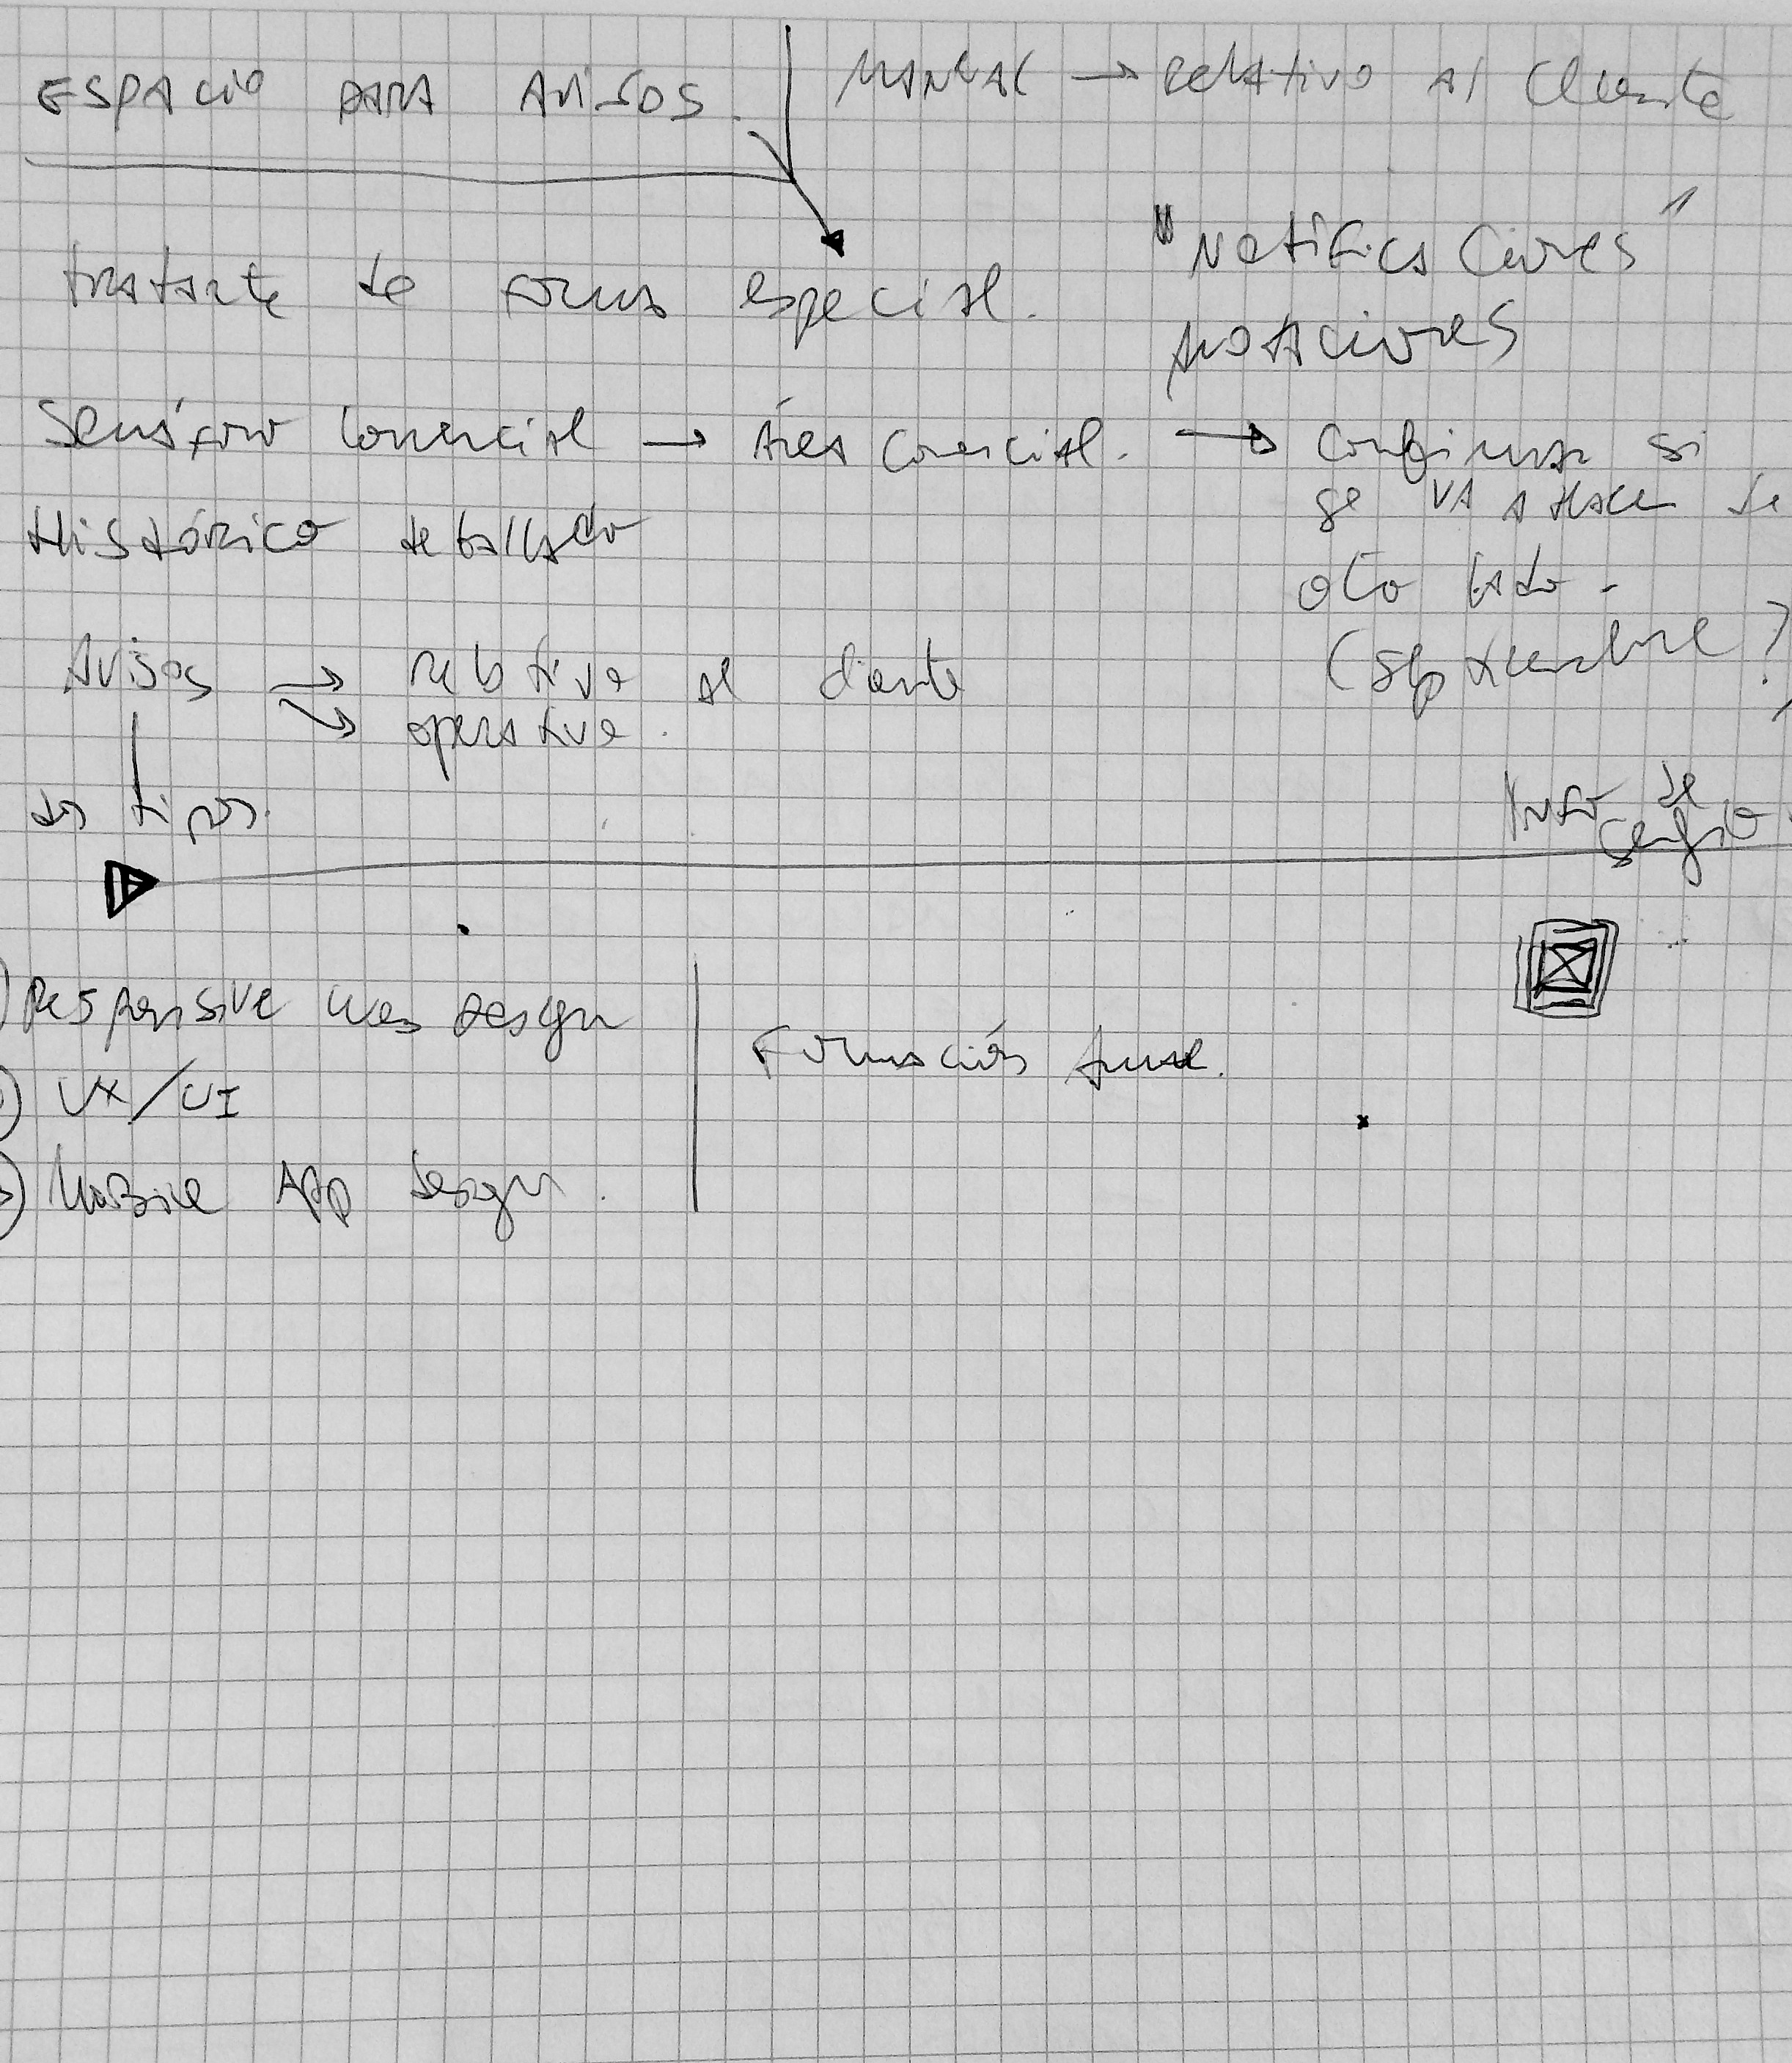 ESPACIO PARA AVISOS.
MANUAL → relativo al cliente
"Notificaciones"
tratarte de forma especial.
anotaciones
Semáforo Comercial → Área Comercial. → Confirmar si
se va a hacer de
otro lado.
(septiembre?)
Histórico detallado
Avisos → relativo al cliente
→ operativo.
dos tipos.
de
Sergio
Responsive Web Design
UX/UI
Mobile App Design.
Formación Anual.